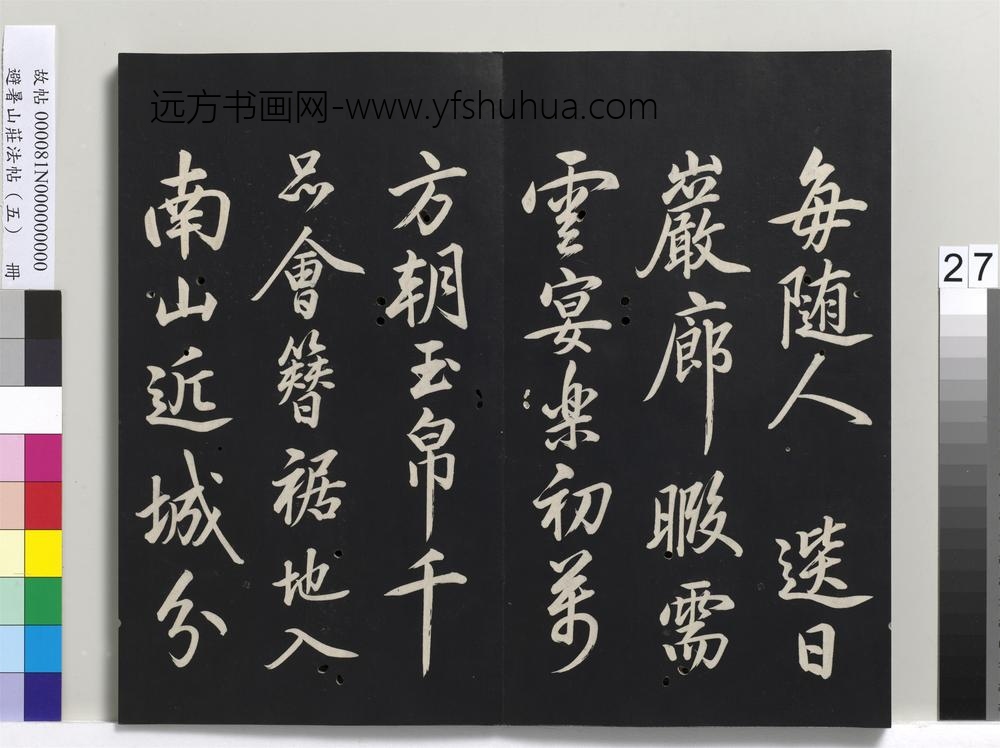 故帖 000081N000000000
避暑山莊法帖（五） 冊
远方书画网-www.yfshuhua.com
27
每随人 選日
巖廊暇需
雲宴楽初萬
方朝玉帛千
品會簪裾地入
南山近城分